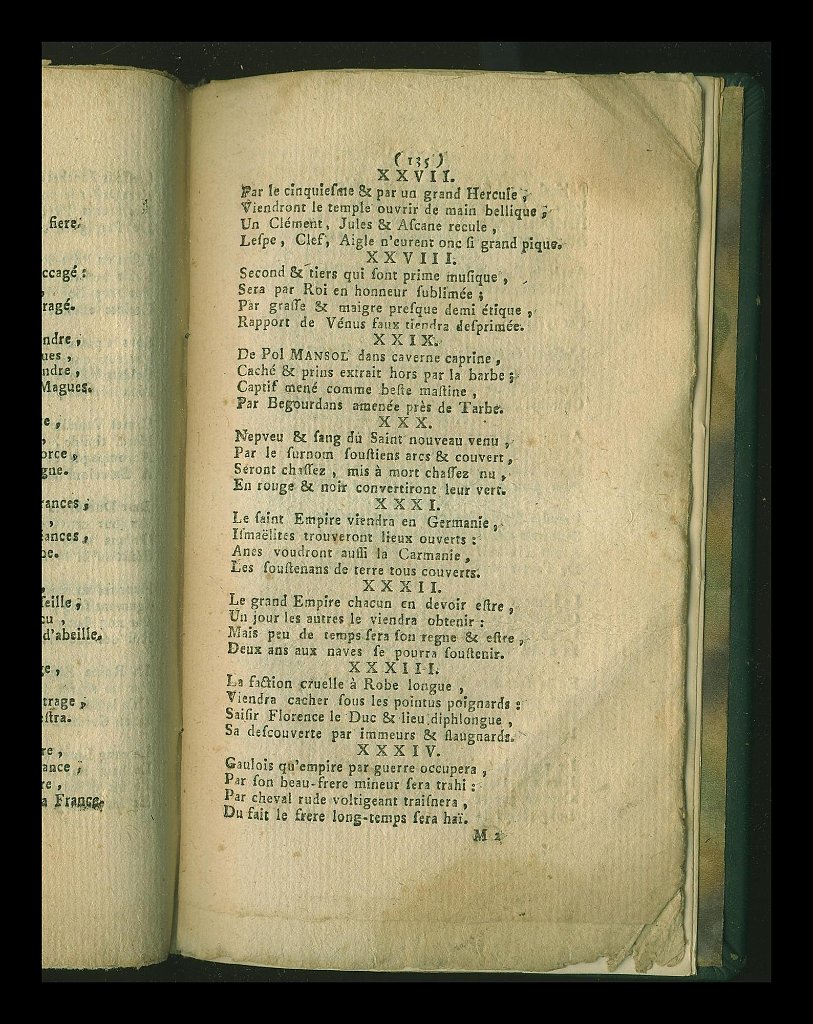 fiere,
ccagé :
,
ragé.
ndre ,
ues ,
ndre ,
Magues.
e ,
,
orce ,
gne.
rances ;
,
éances ,
be.
,
ſeille ;
cu ,
d'abeille.
ge ,
,
trage ;
eſtra.
re ,
ance ;
re ,
a France.
( 135 )
XXVII.
Par le cinquieſme & par un grand Hercule ,
Viendront le temple ouvrir de main bellique ;
Un Clément , Jules & Aſcane recule ,
Leſpe , Clef, Aigle n'eurent onc ſi grand pique.
XXVIII.
Second & tiers qui ſont prime muſique ,
Sera par Roi en honneur ſublimée ;
Par graſſe & maigre preſque demi étique ,
Rapport de Vénus faux tiendra deſprimée.
XXIX.
De Pol MANSOL dans caverne caprine ,
Caché & prins extrait hors par la barbe ;
Captif mené comme beſte maſtine ,
Par Begourdans amenée près de Tarbe.
XXX.
Nepveu & ſang du Saint nouveau venu ,
Par le ſurnom ſouſtiens arcs & couvert ,
Seront chaſſez , mis à mort chaſſez nu ,
En rouge & noir convertiront leur vert.
XXXI.
Le ſaint Empire viendra en Germanie ,
Iſmaëlites trouveront lieux ouverts :
Anes voudront auſſi la Carmanie ,
Les ſouſtenans de terre tous couverts.
XXXII.
Le grand Empire chacun en devoir eſtre ,
Un jour les autres le viendra obtenir :
Mais peu de temps ſera ſon regne & eſtre ,
Deux ans aux naves ſe pourra ſouſtenir.
XXXIII.
La faction cruelle à Robe longue ,
Viendra cacher ſous les pointus poignards :
Saiſir Florence le Duc & lieu diphlongue ,
Sa deſcouverte par immeurs & flaugnards.
XXXIV.
Gaulois qu'empire par guerre occupera ,
Par ſon beau-frere mineur ſera trahi :
Par cheval rude voltigeant traiſnera ,
Du fait le frere long-temps ſera haï.
M 2